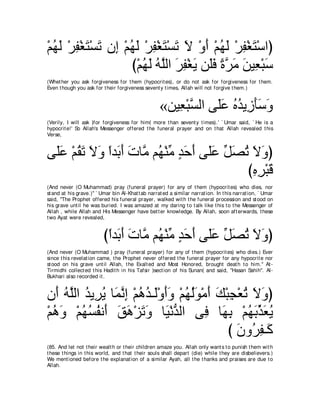 اسْتَغْفِرْ لَهُمْ أَوْ لاَ تَسْتَغْفِرْ لَهُمْ إِن تَسْتَغْفِرْ لَهُمْ
سَبْعِينَ مَرَّةً فَلَن يَغْفِرَ اللَّهُ لَهُمْ)
(Whether you ask forgiveness for them (hypocrites), or do not ask for forgiveness for them.
Even though you ask for their forgiveness seventy times, Allah will not forgive them.)
وَسَأَزِيدُهُ عَلَى السَّبْعِينَ»
(Verily, I will ask (for forgiveness for him( more than seventy times).' `Umar said, `He is a
hypocrite!' So Allah's Messenger offered the funeral prayer and on that Allah revealed this
Verse,
(وَلاَ تُصَلِّ عَلَى أَحَدٍ مِّنْهُم مَّاتَ أَبَداً وَلاَ تَقُمْ عَلَى
قَبْرِهِ)
(And never (O Muhammad) pray (funeral prayer) for any of them (hypocrites) who dies, nor
stand at his grave.)'' `Umar bin Al-Khattab narrated a similar narration. In this narration, `Umar
said, "The Prophet offered his funeral prayer, walked with the funeral procession and stood on
his grave until he was buried. I was amazed at my daring to talk like this to the Messenger of
Allah , while Allah and His Messenger have better knowledge. By Allah, soon afterwards, these
two Ayat were revealed,
(وَلاَ تُصَلِّ عَلَى أَحَدٍ مِّنْهُم مَّاتَ أَبَداً)
(And never (O Muhammad ) pray (funeral prayer) for any of them (hypocrites) who dies.) Ever
since this revelation came, the Prophet never offered the funeral prayer for any hypocrite nor
stood on his grave until Allah, the Exalted and Most Honored, brought death to him.'' At-
Tirmidhi collected this Hadith in his Tafsir )section of his Sunan( and said, "Hasan Sahih". Al-
Bukhari also recorded it.
(وَلاَ تُعْجِبْكَ أَمْوَلُهُمْ وَأَوْلَـدُهُمْ إِنَّمَا يُرِيدُ اللَّهُ أَن
يُعَذِّبَهُمْ بِهَا فِى الدُّنْيَا وَتَزْهَقَ أَنفُسُهُمْ وَهُمْ
كَـفِرُونَ )
(85. And let not their wealth or their children amaze you. Allah only wants to punish them with
these things in this world, and that their souls shall depart (die) while they are disbelievers.)
We mentioned before the explanation of a similar Ayah, all the thanks and praises are due to
Allah.